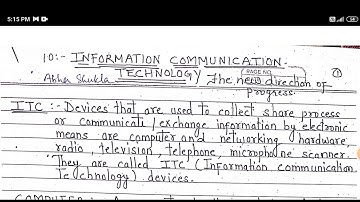 5:15 PM
10:- INFORMATION COMMUNICATION
TECHNOLOGY the new direction of
PAGE NO.
Abha Shukla
progress.
①
ITC :- Devices that are used to collect share process
or communicati / exchange information by electronic
means are computer and networking hardware,
radio, television, telephone, microphone scanner.
They are called ITC (Information communication
Technology) devices.